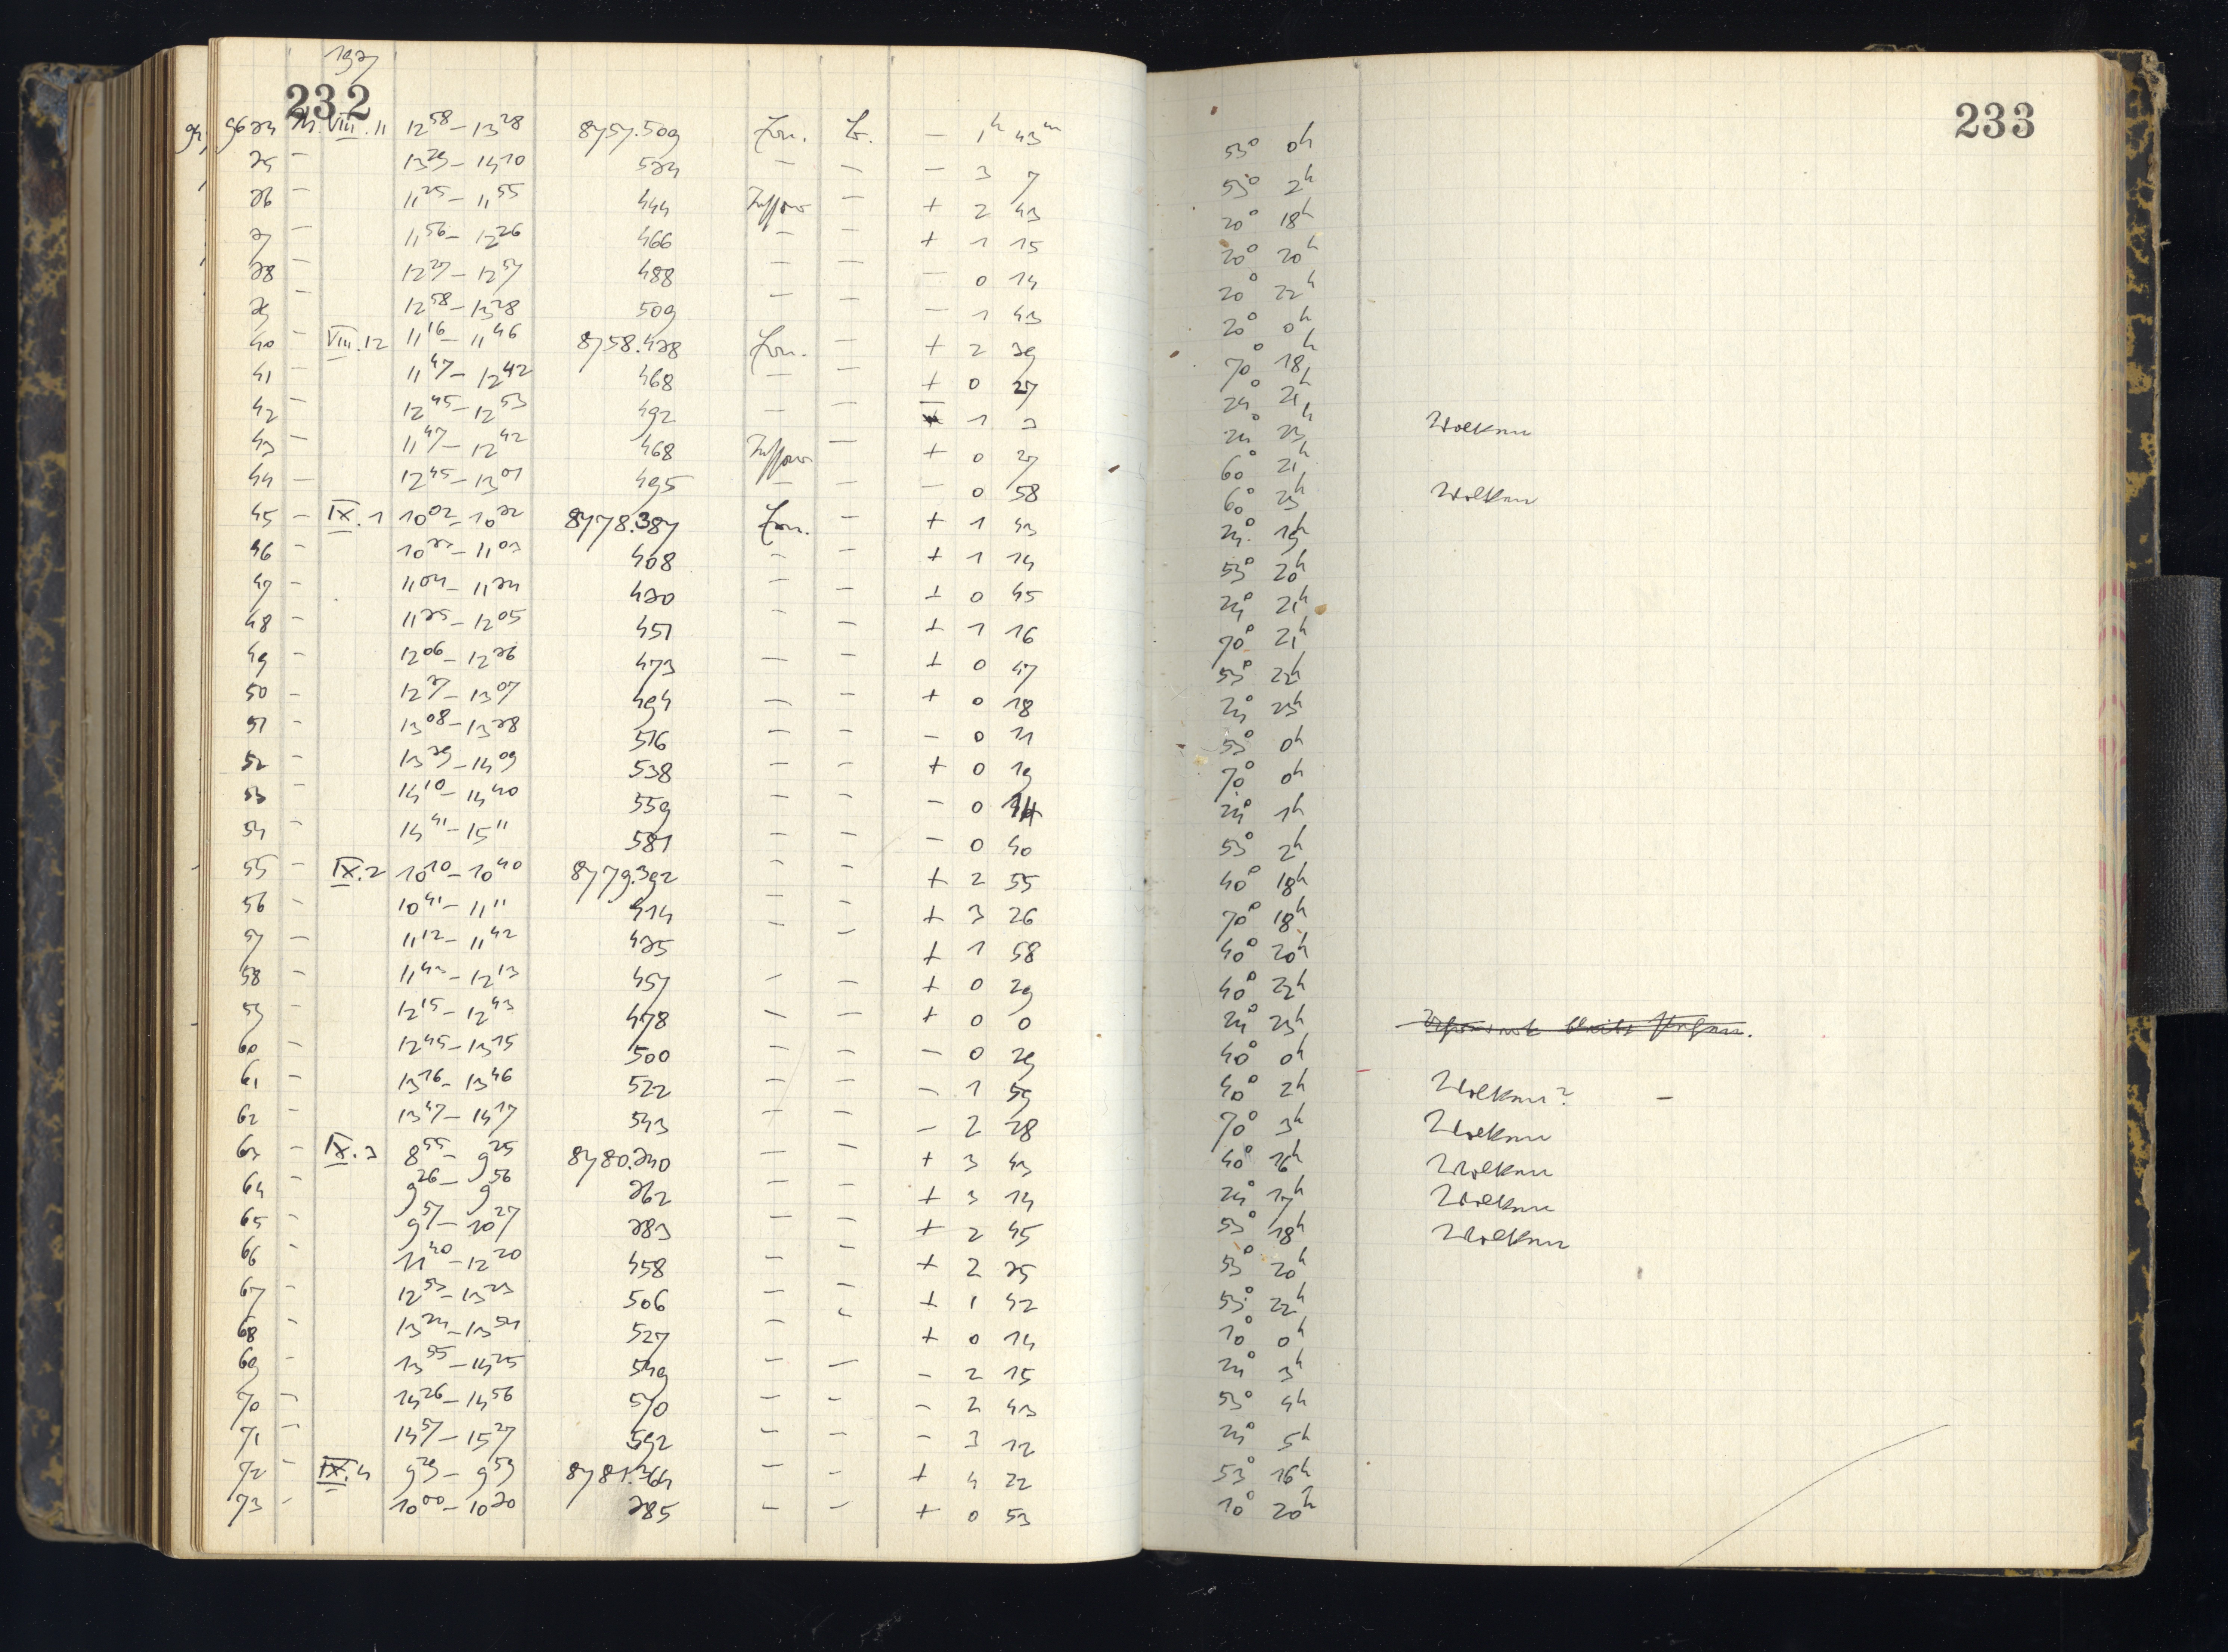 1937
232
9634 VIII.11 12 58 – 13 28 8757.509 – 1h 43m
35 – 13 29 – 14 10 534 – – – 3 7
36 – 11 25 – 11 55 444 – + 2 43
37 – 11 56 – 12 26 466 – – + 1 15
38 – 12 27 – 12 57 488 – – – 0 14
39 – 12 58 – 13 28 509 – – – 1 43
40 – VIII.12 11 16 – 11 46 8758.438 – + 2 39
41 – 11 47 – 12 42 468 – – + 0 27
42 – 12 45 – 12 53 492 – – – 1 3
43 – 11 47 – 12 42 468 – + 0 27
44 – 12 45 – 13 01 495 – – – 0 58
45 – IX.1 10 02 – 10 32 8778.387 – + 1 43
46 – 10 33 – 11 03 408 – – + 1 14
47 – 11 04 – 11 34 430 – – + 0 45
48 – 11 35 – 12 05 451 – – + 1 16
49 – 12 06 – 12 36 473 – – + 0 47
50 – 12 37 – 13 07 494 – – + 0 18
51 – 13 08 – 13 38 516 – – – 0 11
52 – 13 39 – 14 09 538 – – + 0 19
53 – 14 10 – 14 40 559 – – – 0 14
54 – 14 41 – 15 11 581 – – – 0 40
55 – IX.2 10 10 – 10 40 8779.392 – – + 2 55
56 – 10 41 – 11 11 414 – – + 3 26
57 – 11 12 – 11 42 435 – – + 1 58
58 – 11 43 – 12 13 457 – – + 0 29
59 – 12 15 – 12 43 478 – – + 0 0
60 – 12 45 – 13 15 500 – – – 0 29
61 – 13 16 – 13 46 522 – – – 1 59
62 – 13 47 – 14 17 543 – – – 2 28
63 – IX.3 8 55 – 9 25 8780.340 – – + 3 43
64 – 9 26 – 9 56 362 – – + 3 14
65 – 9 57 – 10 27 383 – – + 2 45
66 – 11 40 – 12 20 458 – – + 2 25
67 – 12 53 – 13 23 506 – – + 1 42
68 – 13 24 – 13 54 527 – – + 0 14
69 – 13 55 – 14 25 549 – – – 2 15
70 – 14 26 – 14 56 570 – – – 2 43
71 – 14 57 – 15 27 592 – – – 3 12
72 – IX.4 9 29 – 9 59 8781.364 – – + 4 22
73 – 10 00 – 10 30 385 – – + 0 53
233
53° 0h
53° 2h
20° 18h
20° 20h
20° 22h
20° 0h
70° 18h
24° 21h
24° 23h Wolken
60° 21h
60° 23h Wolken
24° 19h
53° 20h
24° 21h
70° 21h
53° 22h
24° 23h
53° 0h
70° 0h
24° 1h
53° 2h
40° 18h
70° 18h
40° 20h
40° 22h
24° 23h
40° 0h
40° 2h Wolken? –
70° 3h Wolken
40° 16h Wolken
24° 17h Wolken
53° 18h Wolken
53° 20h
53° 22h
10° 0h
24° 3h
53° 4h
24° 5h
53° 16h
10° 20h